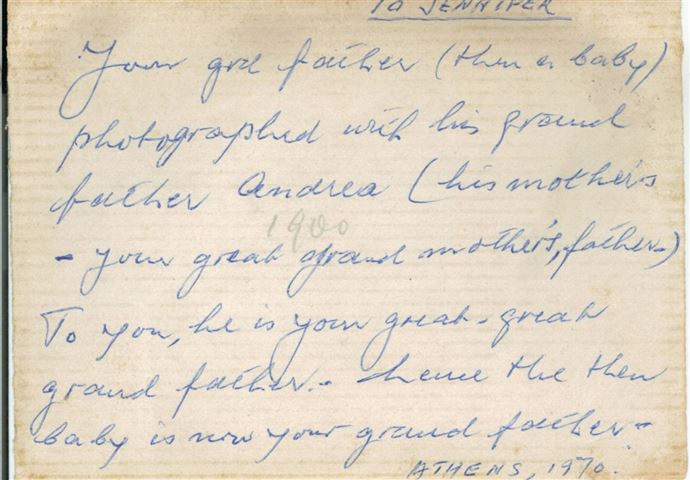 TO JENNIFER
Your grd father (then a baby)
photographed with his grand
father Andrea (his mother's
1900
- your great grand mother's, father-)
To you, he is your great-great
grand father.- hence the then
baby is now your grand father-
ATHENS, 1970.